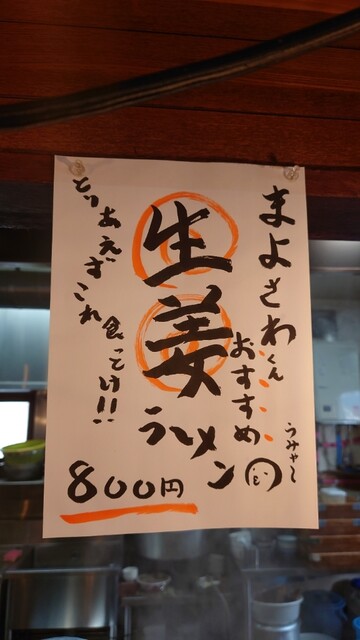 まよさわくん
おすすめ
生姜
ラーメン
とりあえずこれ
食っとけ!!
800円
うみゃー